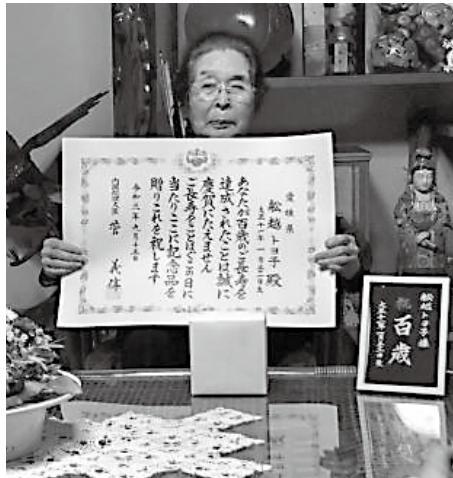 愛媛県
舩越トヨ子殿
大正十一年一月
あなたが百歳のご長寿を
達成されたことは誠に
慶賀にたえません
ご長寿をことほぐこの日に
当たりここに記念品を
贈りこれを祝します
令和三年九月十五日
内閣総理大臣 菅 義偉
舩越トヨ子様
祝 百歳
大正十一年